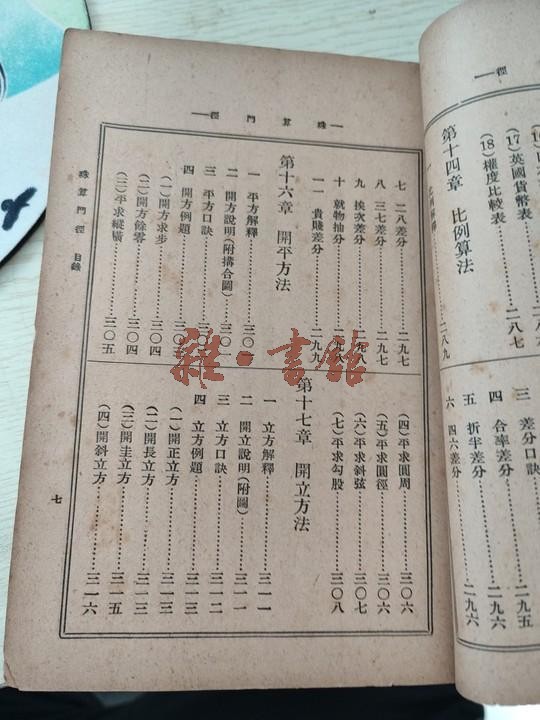 徑
(17)英國貨幣表……二八七
(18)權度比較表……二八七
第十四章 比例算法
二八九
三 差分口訣……二九五
四 合率差分……二九六
五 折半差分……二九六
六 四六差分
珠算門徑
七 二八差分……二九七
八 三七差分……二九七
九 挨次差分……二九八
十 就物抽分……二九九
一一 貴賤差分……二九九
第十六章 開平方法
一 平方解釋……三〇一
二 開方說明(附搆合圖)……三〇一
三 平方口訣……三〇
四 開方例題……三〇
(一)開方求步……三〇四
(二)開方餘零……三〇四
(三)平求縱橫……三〇五
(四)平求圓周……三〇六
(五)平求圓徑……三〇六
(六)平求斜弦……三〇七
(七)平求勾股……三〇八
第十七章 開立方法
一 立方解釋……三一一
二 開立說明(附圖)……三一一
三 立方口訣……三一二
四 立方例題……三一三
(一)開正立方……三一三
(二)開長立方……三一三
(三)開圭立方……三一五
(四)開斜立方……三一六
珠算門徑 目錄
七
雜·書館